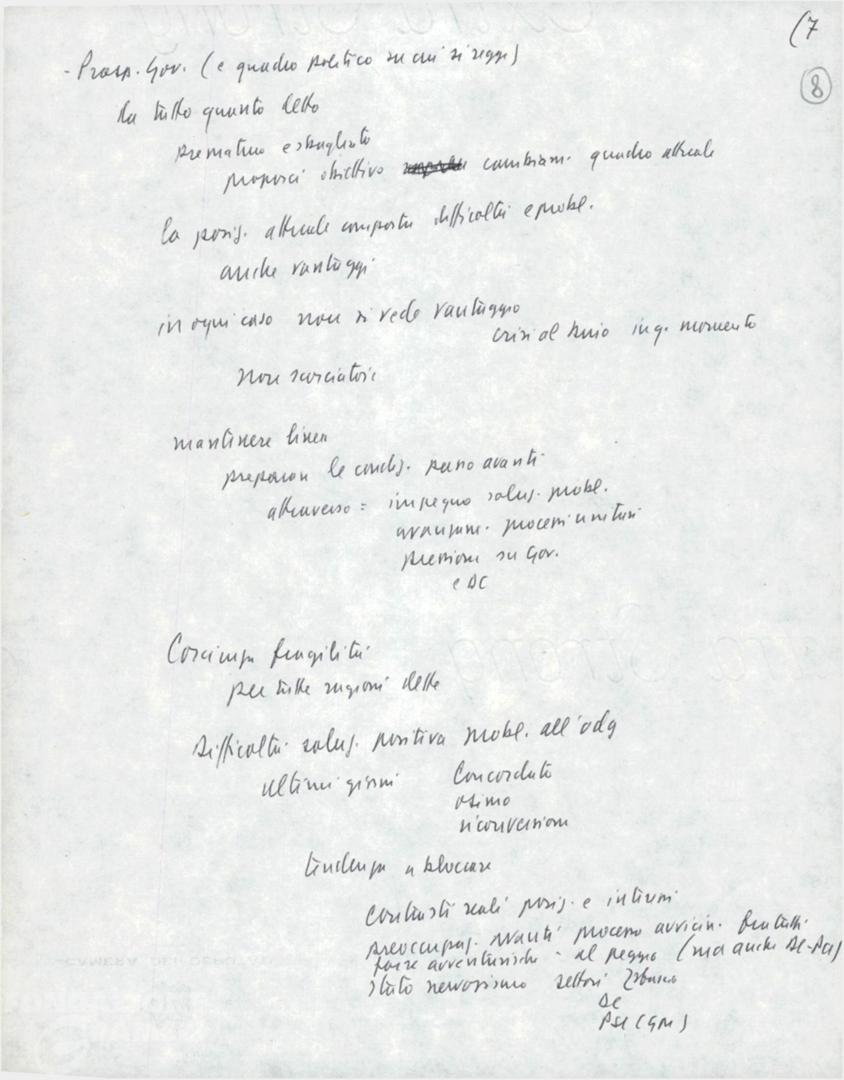 (7
8
- Prosp. Gov. (e quadro politico su cui si regge)
da tutto quanto detto
prematuro e sbagliato
proporci obiettivo cambiam. quadro attuale
la posiz. attuale comporta difficoltà e probl.
anche vantaggi
in ogni caso non si vede vantaggio
crisi al buio in q. momento
non scorciatoie
mantenere linea
preparare le condiz. passo avanti
attraverso = impegno soluz. probl.
avanzam. processi unitari
pressione su Gov.
e DC
Coscienza fragilità
per tutte ragioni dette
Difficoltà soluz. positiva probl. all'odg
ultimi giorni Concordato
osimo
riconversione
tendenza a bloccare
contrasti reali posiz. e intenni
preoccupaz. avanti processo avvicin. fra tutti
forze avventuristiche - al peggio (ma anche DC-PCI)
stato nervosismo settori
DC
PSI (GM)